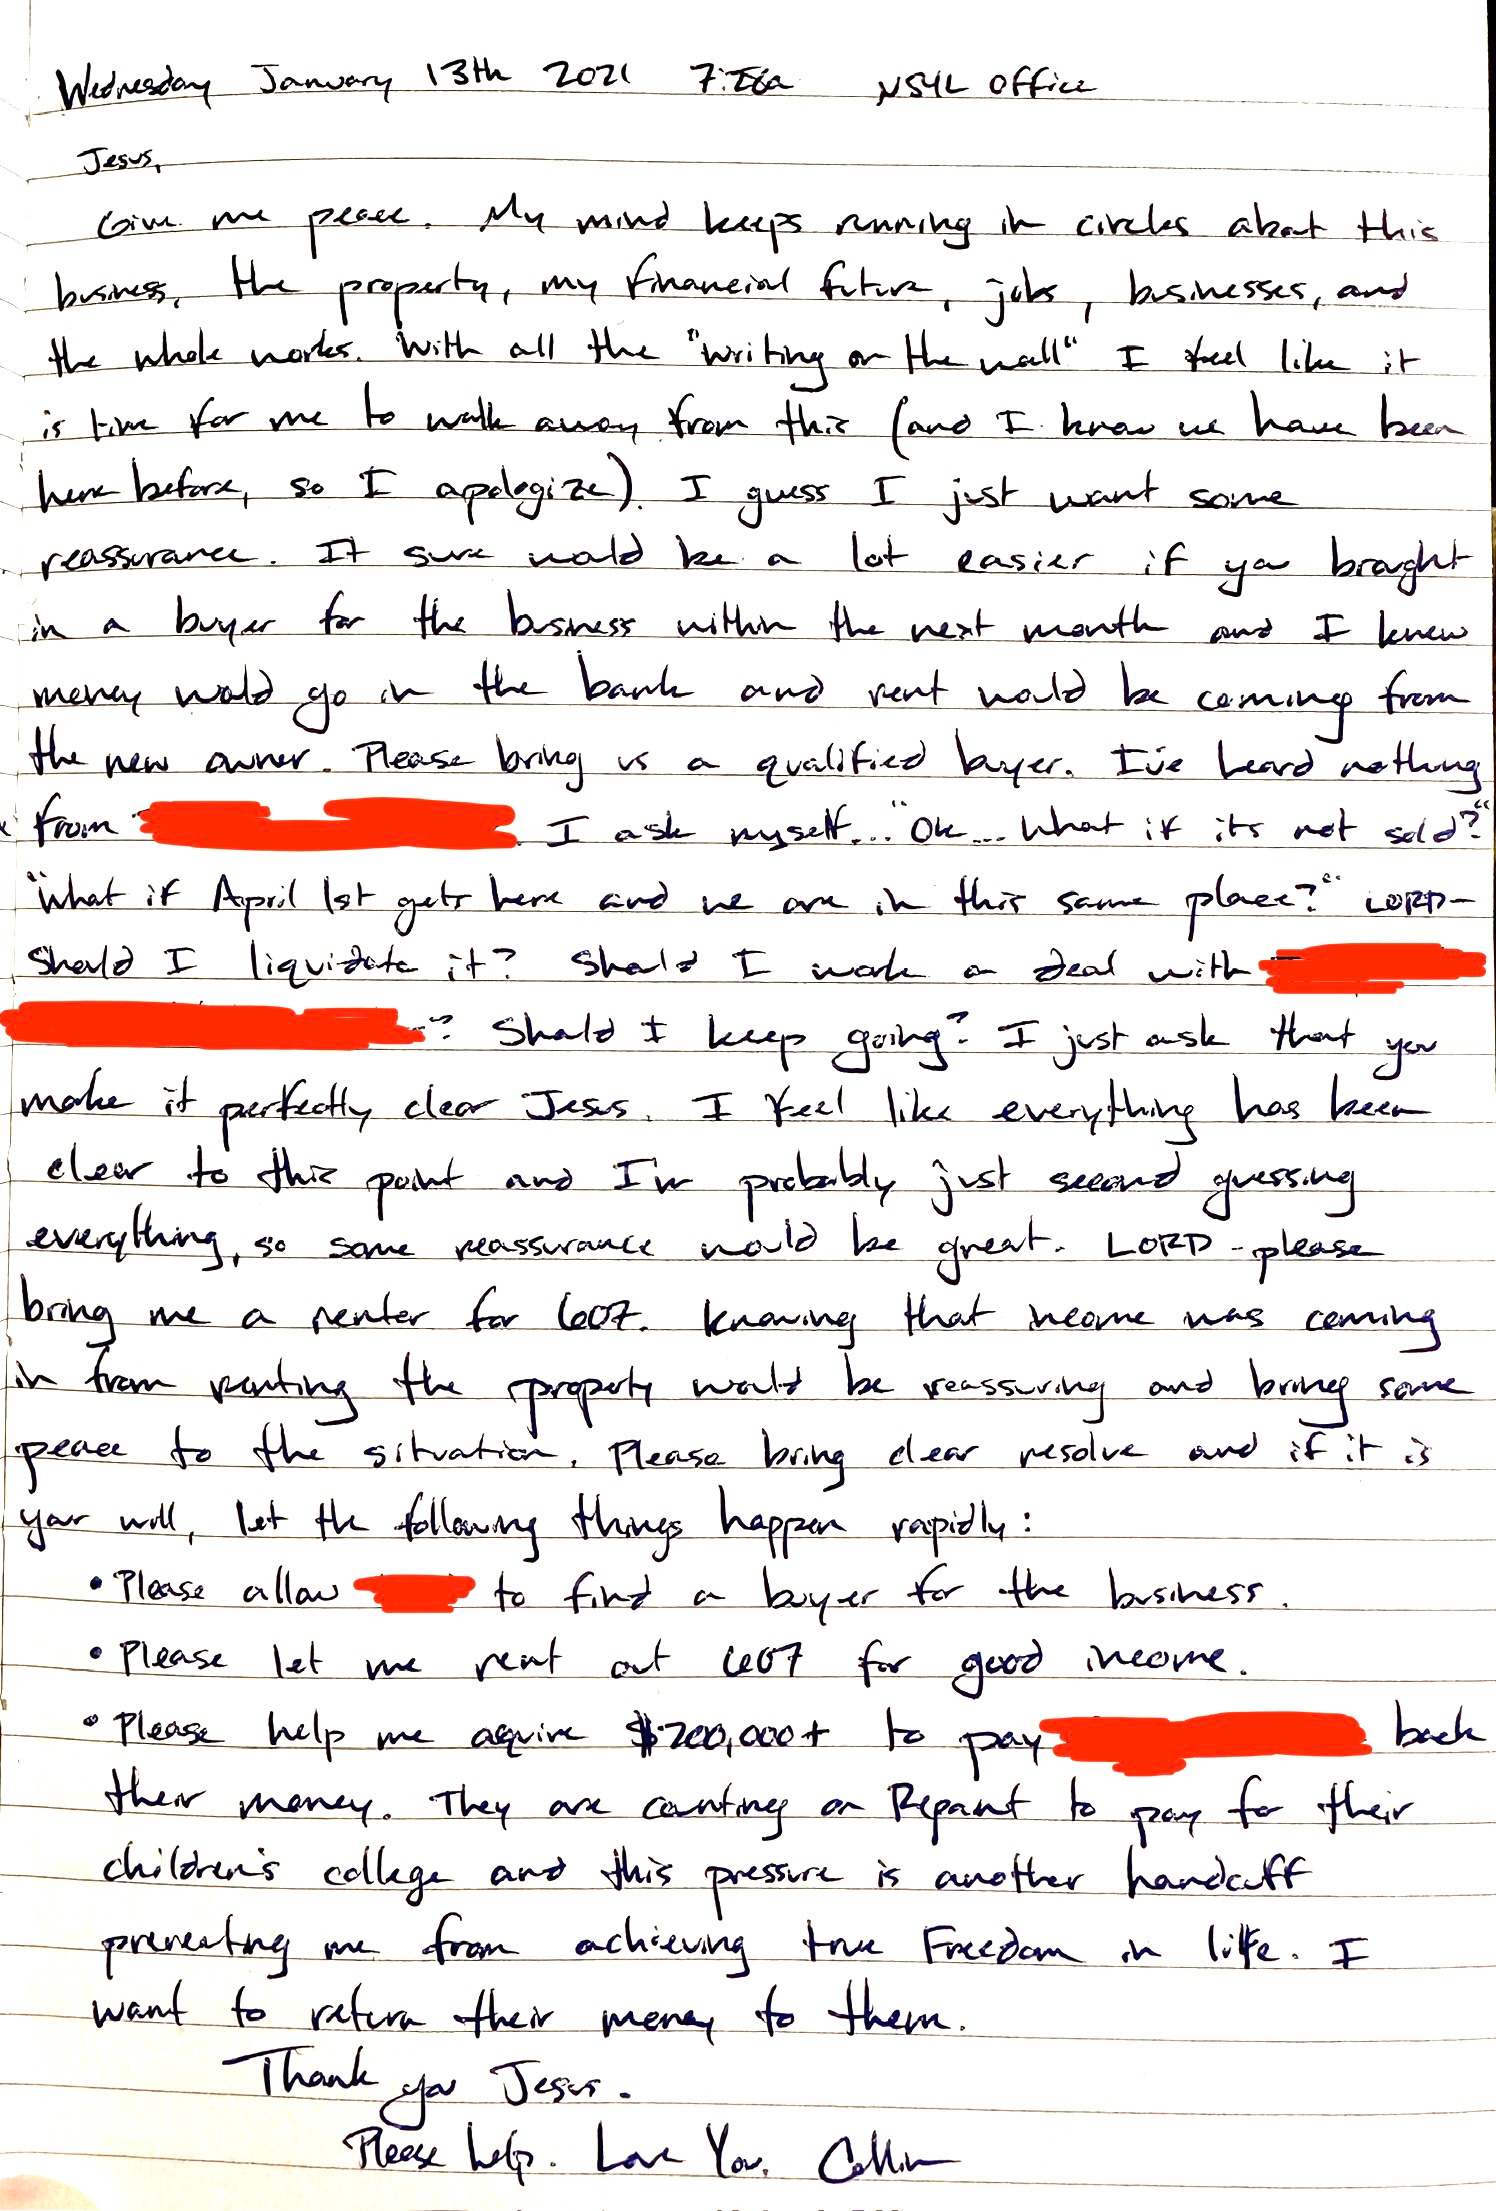 Wednesday January 13th 2021 7:26a NSYL Office
Jesus,
Give me peace. My mind keeps running in circles about this
business, the property, my financial future, jobs, businesses, and
the whole works. With all the "writing on the wall" I feel like it
is time for me to walk away from this (and I know we have been
here before, so I apologize). I guess I just want some
reassurance. It sure would be a lot easier if you brought
in a buyer for the business within the next month and I knew
money would go in the bank and rent would be coming from
the new owner. Please bring us a qualified buyer. I've heard nothing
from . I ask myself... "Ok... What if its not sold?"
"What if April 1st gets here and we are in this same place?" LORD-
Should I liquidate it? Should I work a deal with
? Should I keep going? I just ask that you
make it perfectly clear Jesus. I feel like everything has been
clear to this point and I'm probably just second guessing
everything, so some reassurance would be great. LORD - please
bring me a renter for 607. Knowing that income was coming
in from renting the property would be reassuring and bring some
peace to the situation. Please bring clear resolve and if it is
your will, let the following things happen rapidly:
• Please allow to find a buyer for the business.
• Please let me rent out 607 for good income.
• Please help me aquire $200,000+ to pay back
their money. They are counting on Repant to pay for their
children's college and this pressure is another handcuff
preventing me from achieving true Freedom in life. I
want to return their money to them.
Thank you Jesus.
Please help. Love You. Collin